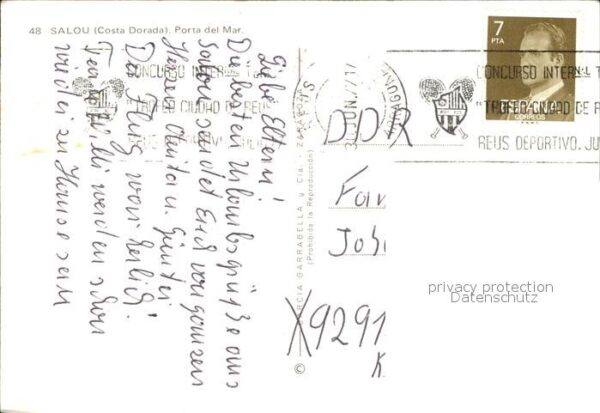 48 SALOU (Costa Dorada). Porta del Mar.
Liebe Eltern!
Die besten Urlaubsgrüße aus
Salou sendet Euch von ganzem
Herzen Anita u. Günter
Der Flug war herrlich!
werden schon
wieder zu Hause sein
CONCURSO INTERN
TROFEO CIUDAD DE REUS
© GARCIA GARRABELLA y Cia. - ZARAGOZA
(Prohibida la Reproducción)
7
PTA
ESPAÑA
CORREOS
CONCURSO INTERN
"TROFEO CIUDAD DE R
REUS DEPORTIVO. JU
DDR
Fam
Joh
X9291
K
privacy protection
Datenschutz